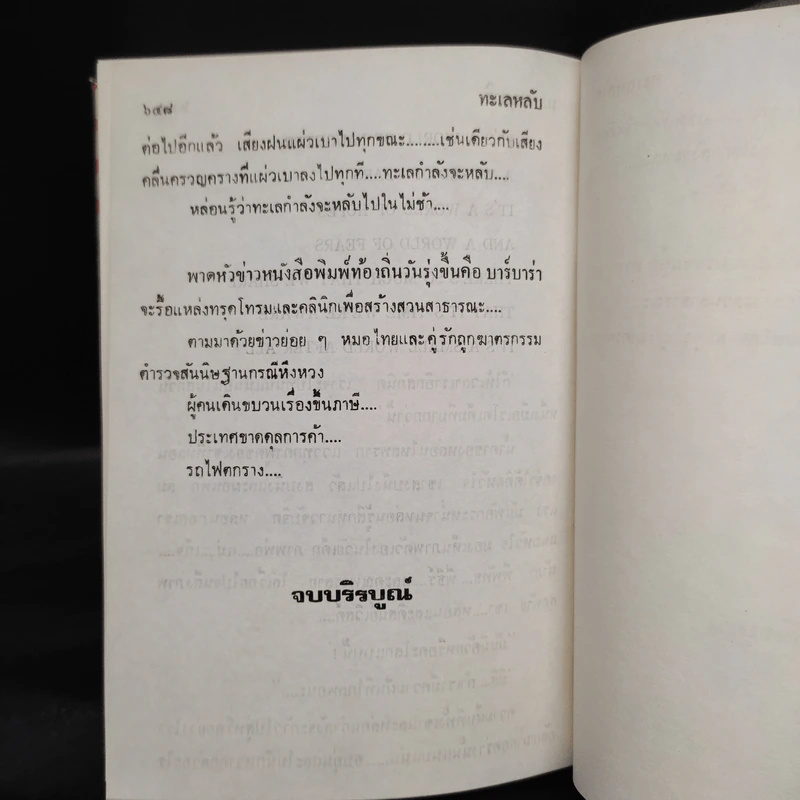 ๖๔๘
ทะเลหลับ
ต่อไปอีกแล้ว เสียงฝนแผ่วเบาไปทุกขณะ........เช่นเดียวกับเสียง
คลื่นครวญครางที่แผ่วเบาลงไปทุกที....ทะเลกำลังจะหลับ....
หล่อนรู้ว่าทะเลกำลังจะหลับไปในไม่ช้า....
พาดหัวข่าวหนังสือพิมพ์ท้องถิ่นวันรุ่งขึ้นคือ บาร์บาร่า
จะรื้อแหล่งทรุดโทรมและคลินิกเพื่อสร้างสวนสาธารณะ....
ตามมาด้วยข่าวย่อย ๆ หมอไทยและคู่รักถูกฆาตกรรม
ตำรวจสันนิษฐานกรณีหึงหวง
ผู้คนเดินขบวนเรื่องขึ้นภาษี....
ประเทศขาดดุลการค้า....
รถไฟตกราง....
จบบริรบูณ์